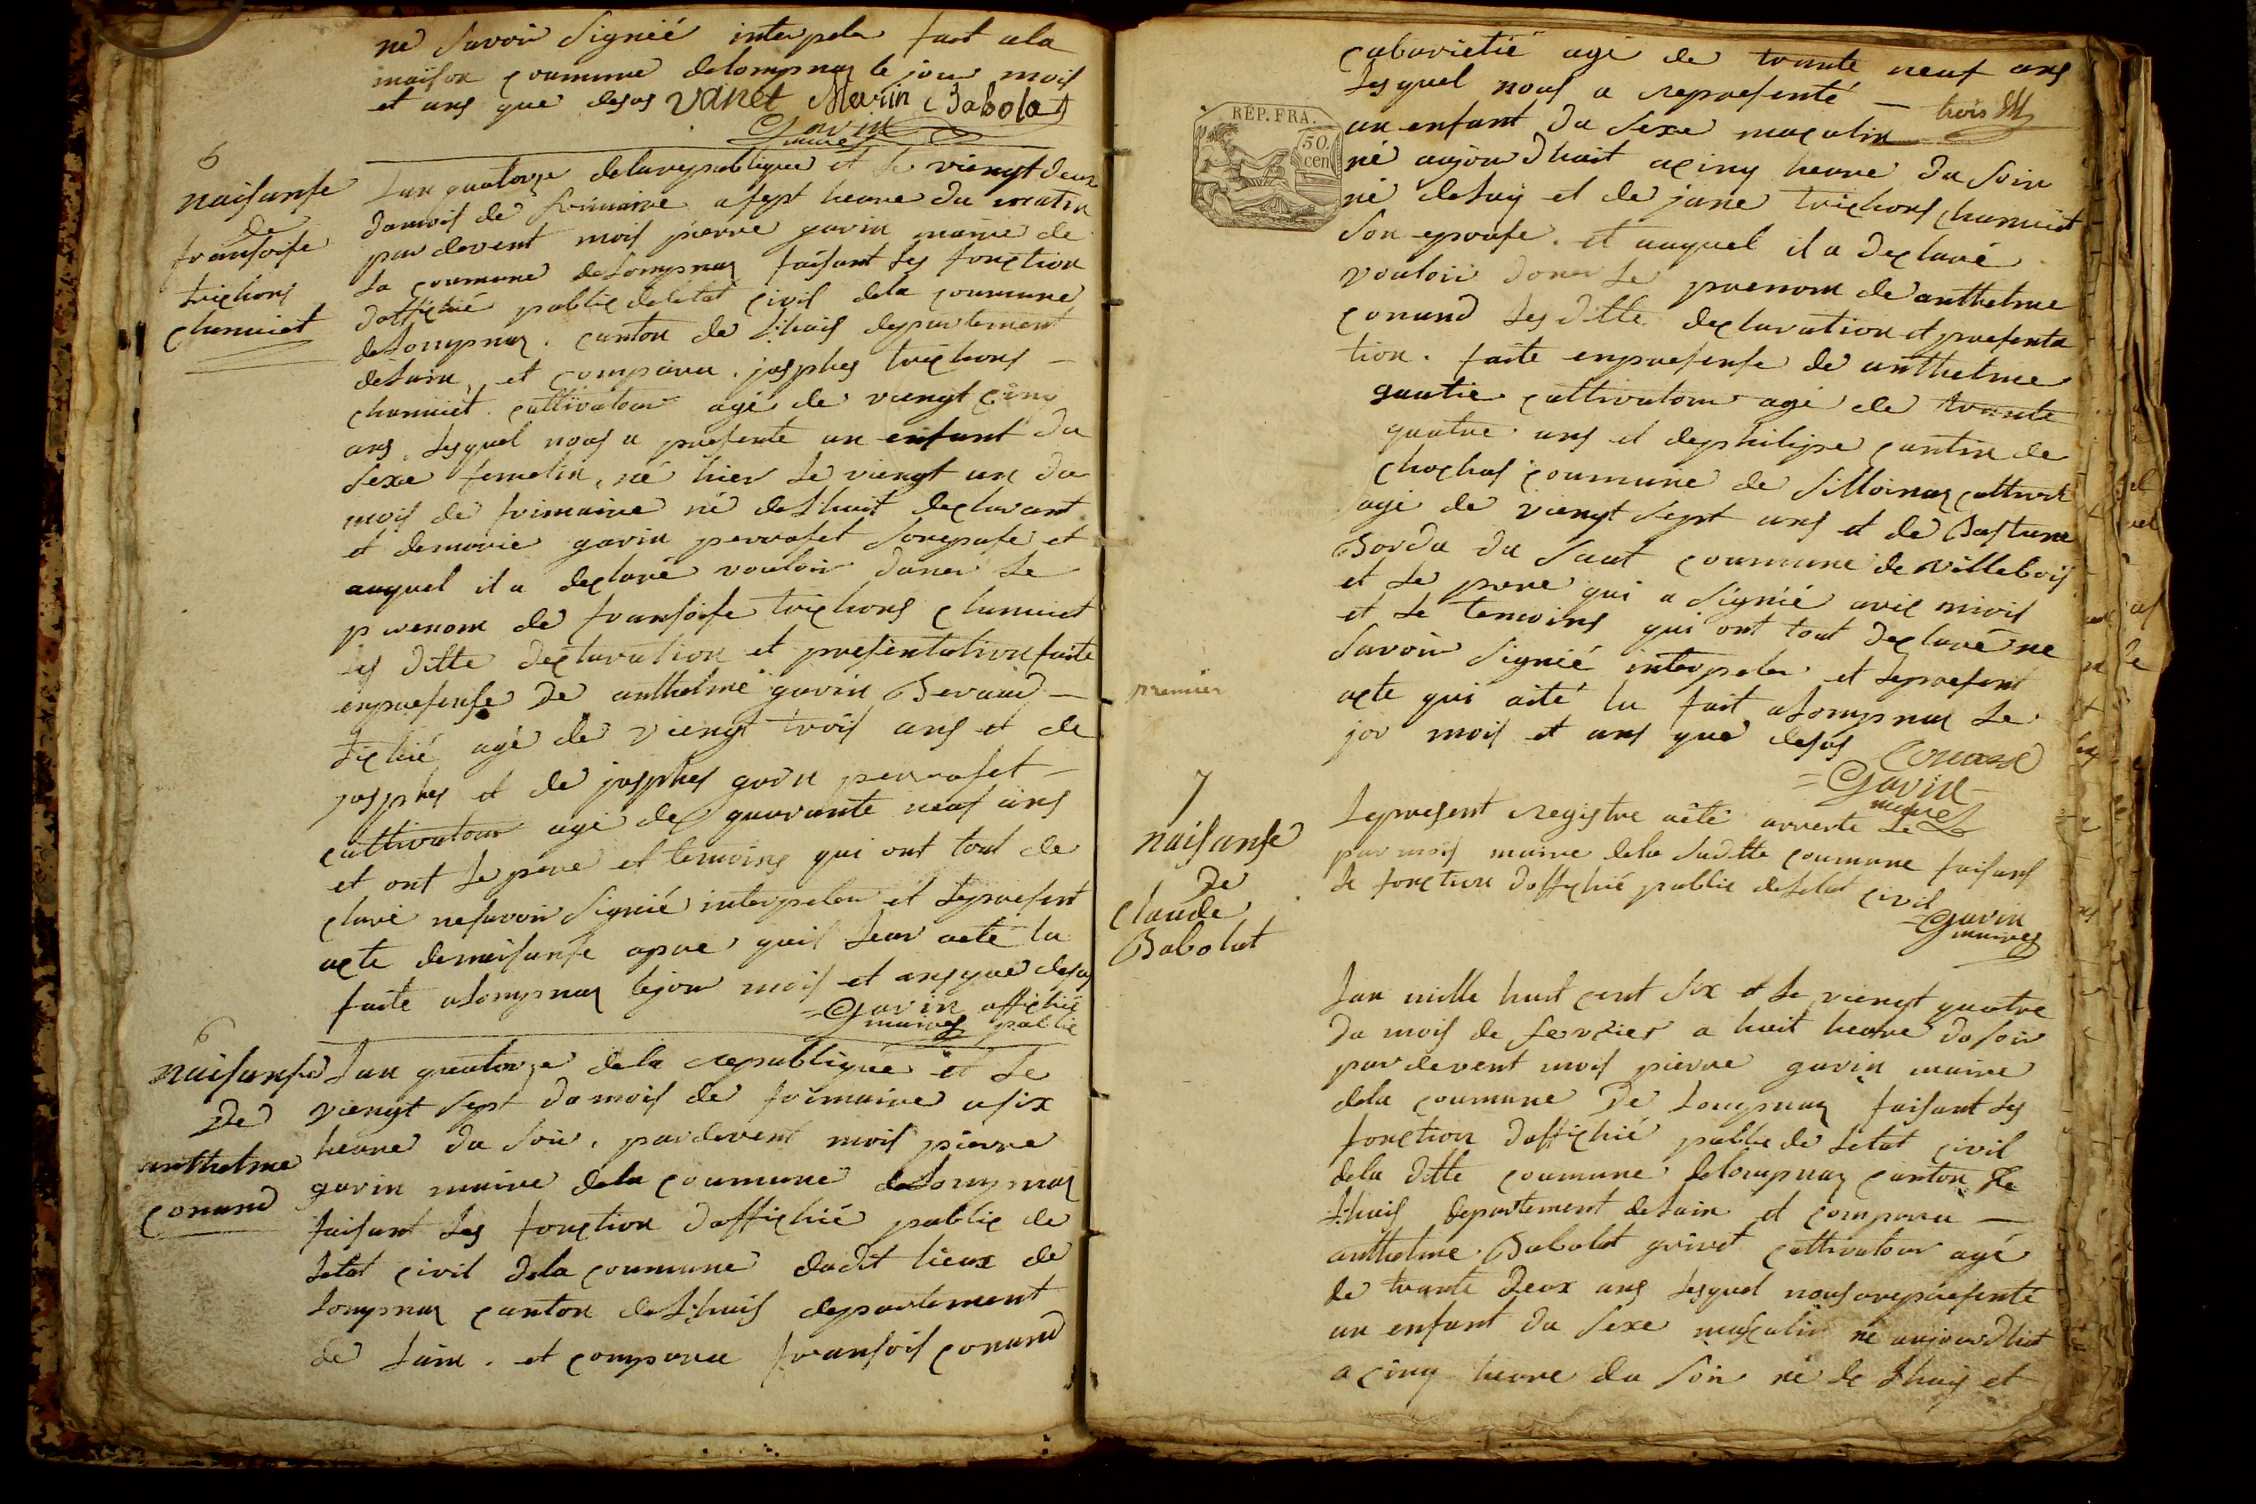 ne savoir signié interpeler fait ala
maison coumune delompnaz le jour mois
et ans que desus vanet Marin Babolat
Gavin
maire
6
naisanse
de
fransoise
trichons
chamiet
Lan quatorze delarepublique et le viengt deux
dumois de frimaire a sept heure du matin
par devent mois pierre gavin maire de
la coumune delompnaz faisant les fonction
dofficié public deletat civil dela coumune
delompnaz. canton de lhuis departement
delain, et comparu. josphes trichons
chamiet cultivatour agé de viengt cinq
ans, lesquel nous a presenté un enfant du
sexe femelin, né hier le viengt un du
mois de frimaire né deluit declarant
et demarie gavin perrafet son epouse et
auquel il a declaré vouloir doner le
prenom de fransoise trichons chamiet
les ditte declaration et presentation faite
enpresense de anthelme gavin Beraud
tichié agé de viengt trois ans et de
josphes et de josphes gavin perrafet
cultivatour agé de quarante neuf ans
et ont le pere et temoins qui ont tout de
claré nesavoir signié interpeler et lepresent
acte denaisanse apre quil leur aeté lu
faite alompnaz lejour mois et ans que desus
Gavin officié
maire public
6
naisanse
de
anthelme
conand
Lan quatorze dela republique et le
viengt sept du mois de frimaire a six
heure du soir, pardevent mois pierre
gavin maire dela coumune delompnaz
faisant les fonction dofficié public de
letat civil dela coumune dudit lieux de
lompnaz canton de lhuis departement
de lain. et comparu fransois conand
cabarietié agé de trante neuf ans
lesquel nous a representé
un enfant du sexe masculin
né aujourdhuit acinq heure du soir
né deluy et de jane trichons chamiet
son epouse. et auquel il a declaré
vouloir doner le prenom de anthelme
conand les ditte declaration et presenta
tion. faite enpresense de anthelme
gautie cultivatour agé de trante
quatre ans et dephilipe cantin de
chochas coumune de Silloinaz cultivat
agé de viengt sept ans et de Bastiane
Borda du Saut coumune de villebois
et le pere qui a signié avec mois
et le temoins qui ont tout declaré ne
savoir signié interpeler et lepresent
acte qui aité lu fait alompnaz le
jor mois et ans que desus
Conand
Gavin
maire
trois
REP. FRA.
50
cen
premier
Lepresent registre aété arreté le
par mois maire dela suditte coumune faisans
le fonction dofficié public deletat civil
Gavin
maire
7
naisanse
de
claude
Babolat
Lan mille huit cent six et le viengt quatre
du mois de fevrier a huit heure dusoir
pardevent mois pierre gavin maire
dela coumune De lompnaz faisant les
fonction dofficié public de letat civil
dela ditte coumune delompnaz canton de
lhuis departement delain et comparu
anthelme Babolat grivet cultivatour agé
de trante deux ans lesquel nous arepresenté
un enfant du sexe masculin né aujourdhit
a cinq heure du soir né de lhuis et